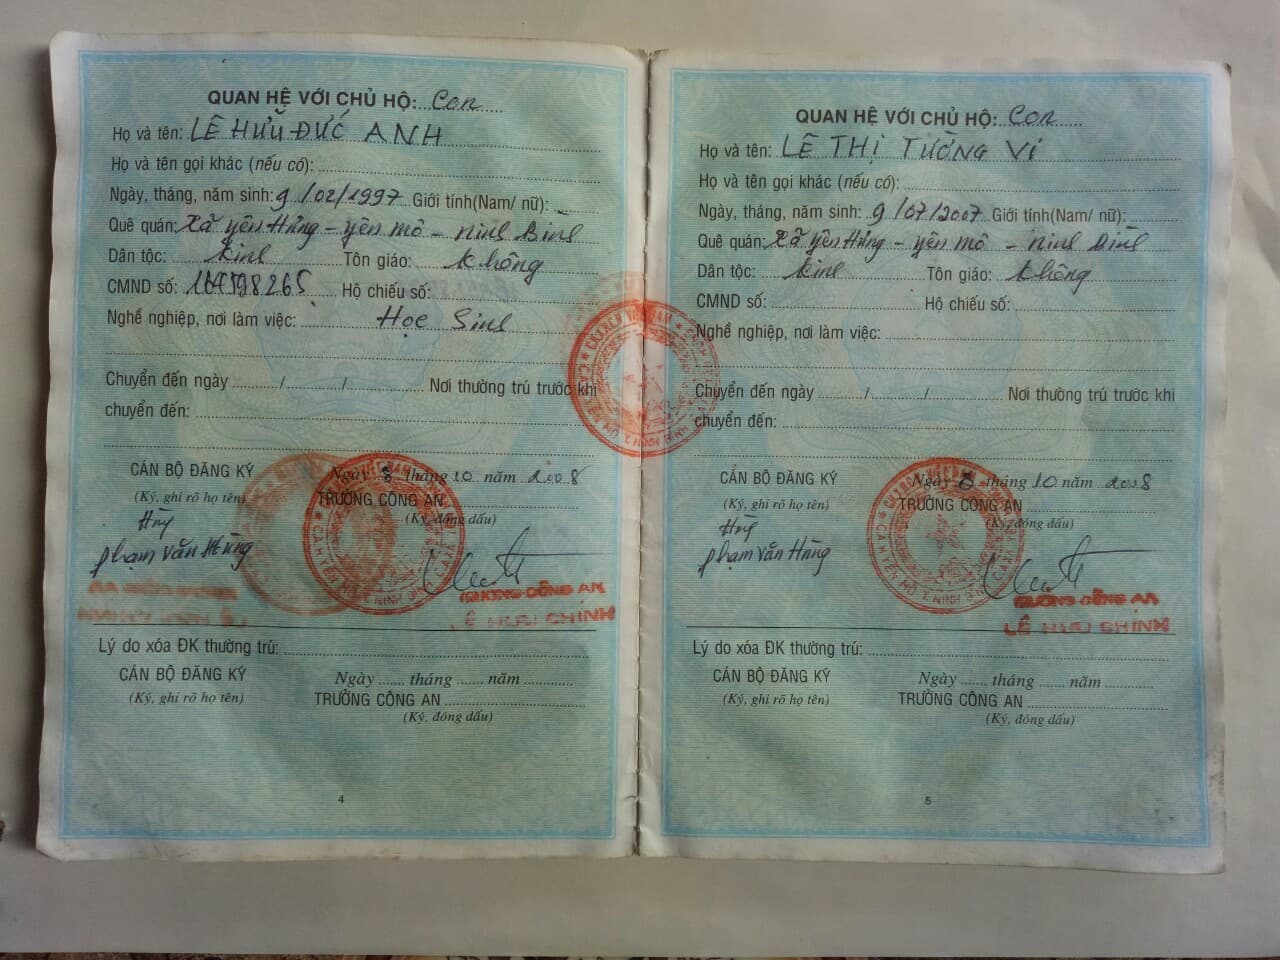 QUAN HỆ VỚI CHỦ HỘ: Con
Họ và tên: LÊ HỮU ĐỨC ANH
Họ và tên gọi khác (nếu có):
Ngày, tháng, năm sinh: 9/02/1997 Giới tính(Nam/ nữ):
Quê quán: Xã Yên Hưng - Yên Mô - Ninh Bình
Dân tộc: Kinh Tôn giáo: Không
CMND số: 164598265 Hộ chiếu số:
Nghề nghiệp, nơi làm việc: Học Sinh
Chuyển đến ngày ....../....../...... Nơi thường trú trước khi
chuyển đến:
CÁN BỘ ĐĂNG KÝ Ngày 8 tháng 10 năm 2008
(Ký, ghi rõ họ tên) TRƯỞNG CÔNG AN
(Ký, đóng dấu)
Phạm Văn Hùng
TRƯỞNG CÔNG AN
LÊ HỮU CHÍNH
Lý do xóa ĐK thường trú:
CÁN BỘ ĐĂNG KÝ Ngày ...... tháng ...... năm ......
(Ký, ghi rõ họ tên) TRƯỞNG CÔNG AN
(Ký, đóng dấu)
4
QUAN HỆ VỚI CHỦ HỘ: Con
Họ và tên: LÊ THỊ TƯỜNG VI
Họ và tên gọi khác (nếu có):
Ngày, tháng, năm sinh: 9/07/2007 Giới tính(Nam/ nữ):
Quê quán: Xã Yên Hưng - Yên Mô - Ninh Bình
Dân tộc: Kinh Tôn giáo: Không
CMND số: Hộ chiếu số:
Nghề nghiệp, nơi làm việc:
Chuyển đến ngày ....../....../...... Nơi thường trú trước khi
chuyển đến:
CÁN BỘ ĐĂNG KÝ Ngày 8 tháng 10 năm 2008
(Ký, ghi rõ họ tên) TRƯỞNG CÔNG AN
(Ký, đóng dấu)
Phạm Văn Hùng
TRƯỞNG CÔNG AN
LÊ HỮU CHÍNH
Lý do xóa ĐK thường trú:
CÁN BỘ ĐĂNG KÝ Ngày ...... tháng ...... năm ......
(Ký, ghi rõ họ tên) TRƯỞNG CÔNG AN
(Ký, đóng dấu)
5